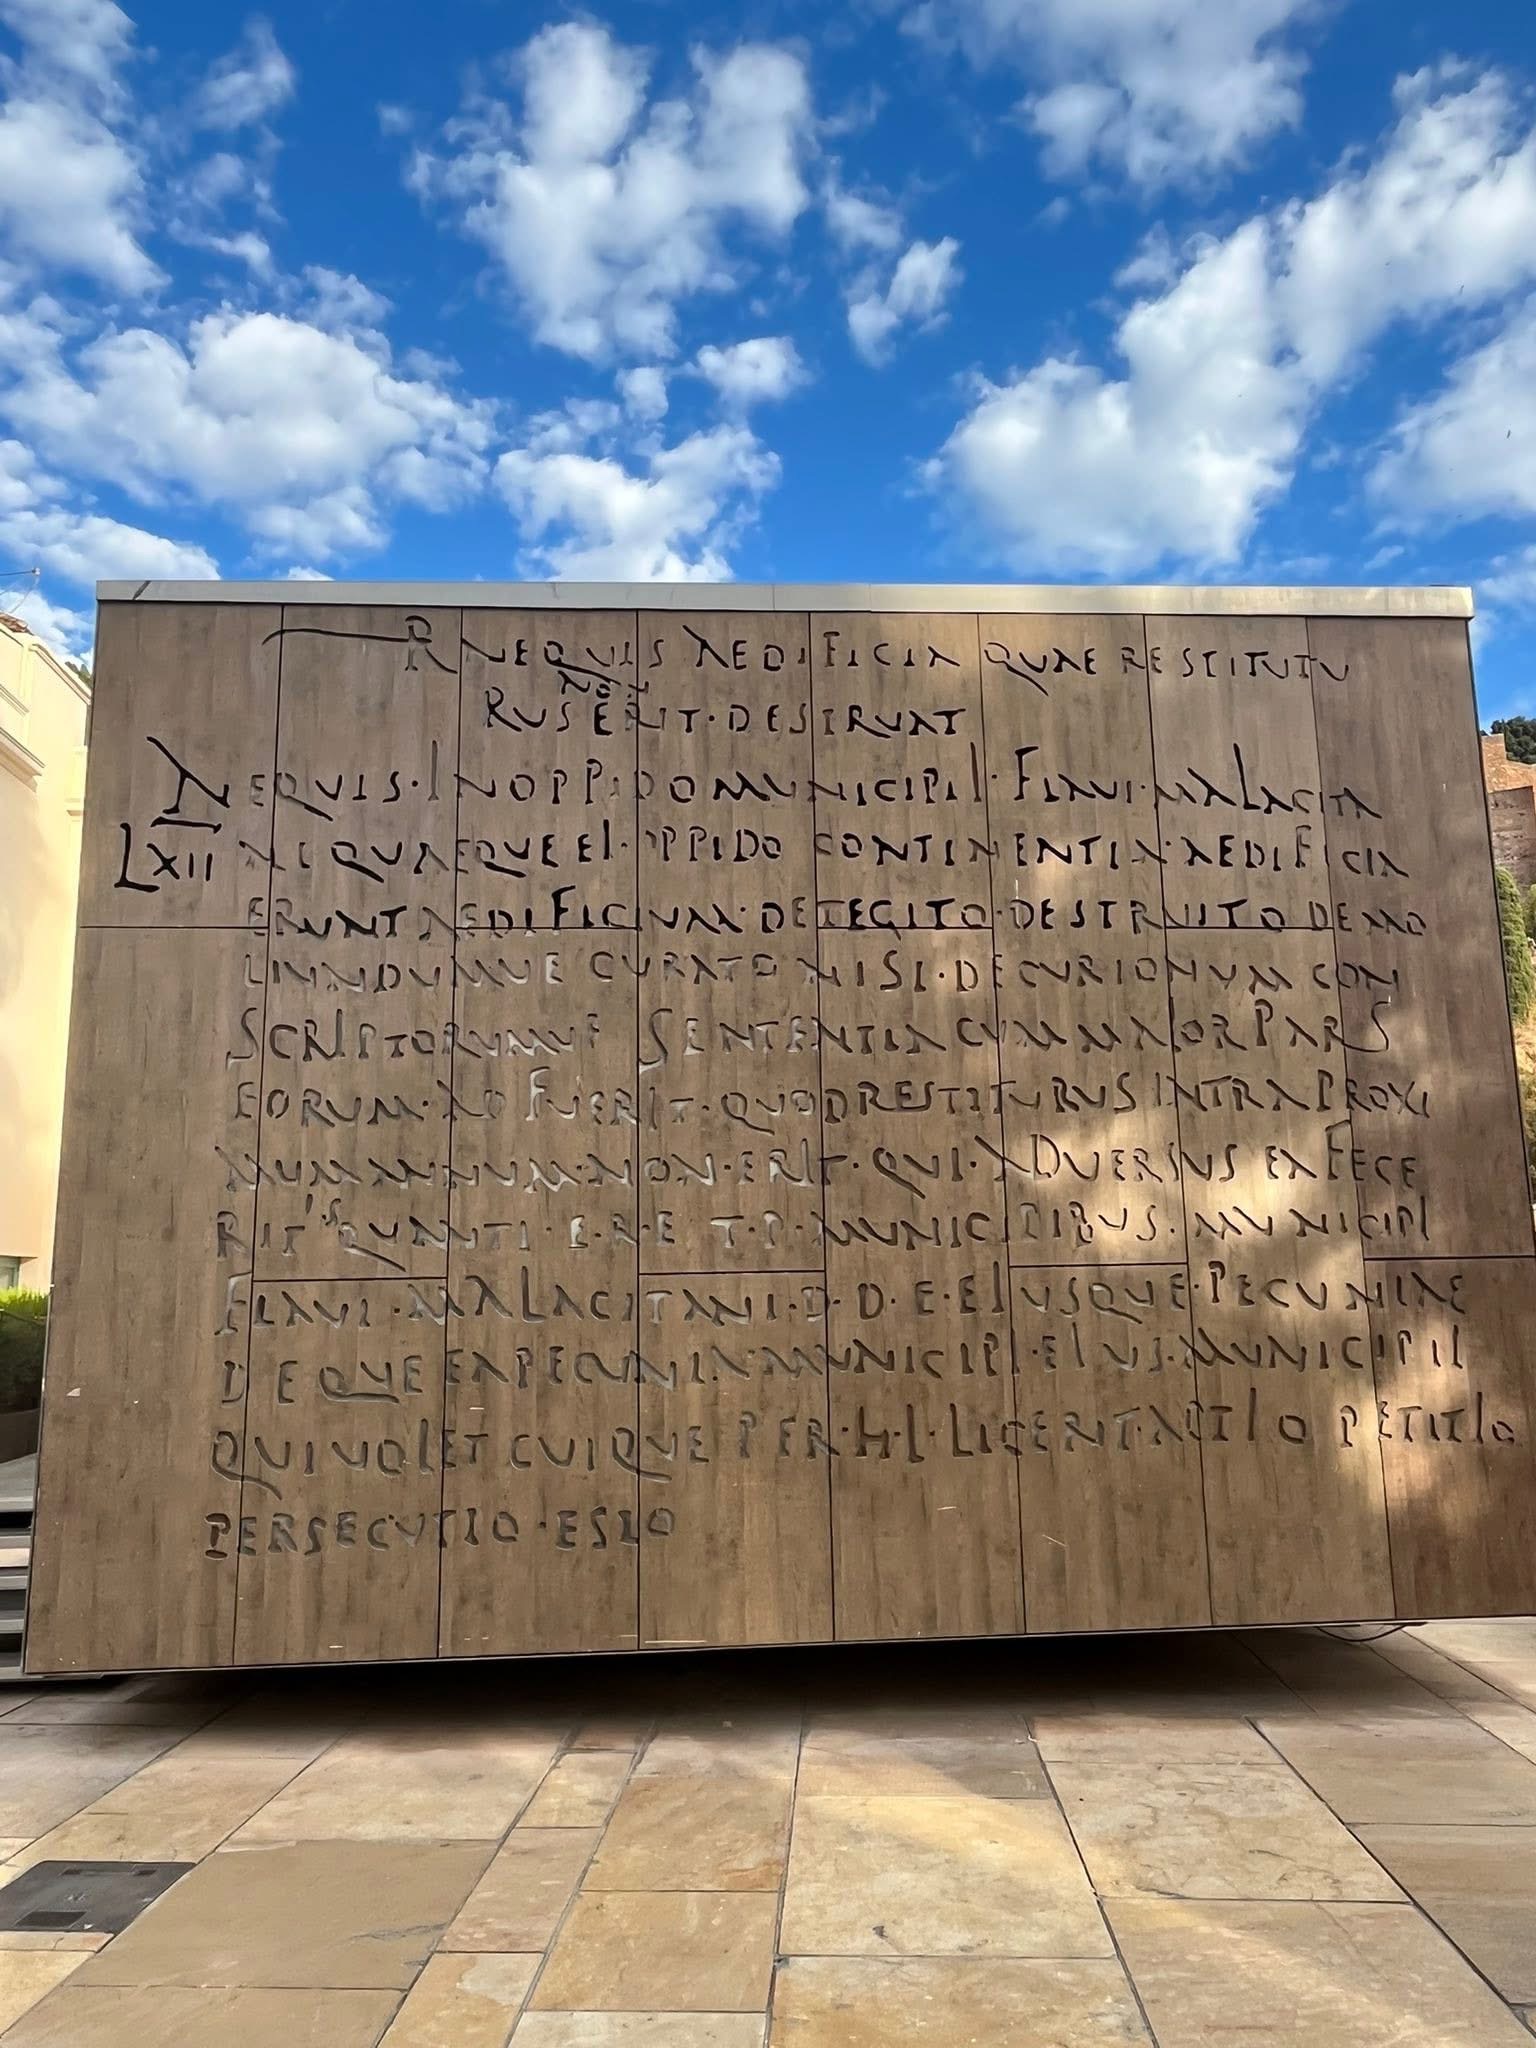 R NE QUIS AEDIFICIA QUAE RESTITUTU
NE
RUS ERIT · DESTRUAT
NE QUIS · IN OPPIDO MUNICIPII · FLAVI · MALACITA
LXII NI QUAEQUE EI · OPPIDO CONTINENTIA · AEDIFICIA
ERUNT AEDIFICIUM · DETEGITO · DESTRUITO DEMO
LIUNDUMVE CURATO NISI · DECURIONUM CON
SCRIPTORUMVE SENTENTIA CUM MAIOR PARS
EORUM · AD FUERIT · QUOD RESTITURUS INTRA PROXI
MUM ANNUM · NON · ERIT · QUI · ADVERSUS EA FECE
RIT IS QUANTI · E · R · E T · P · MUNICIPIBUS · MUNICIPI
FLAVI · MALACITANI · D · D · E · EIUSQUE · PECUNIAE
DEQUE EA PECUNIA · MUNICIPI · EIUS · MUNICIPII
QUI VOLET CUIQUE PER · H · L · LICEBIT · ACTIO PETITIO
PERSECUTIO · ESTO